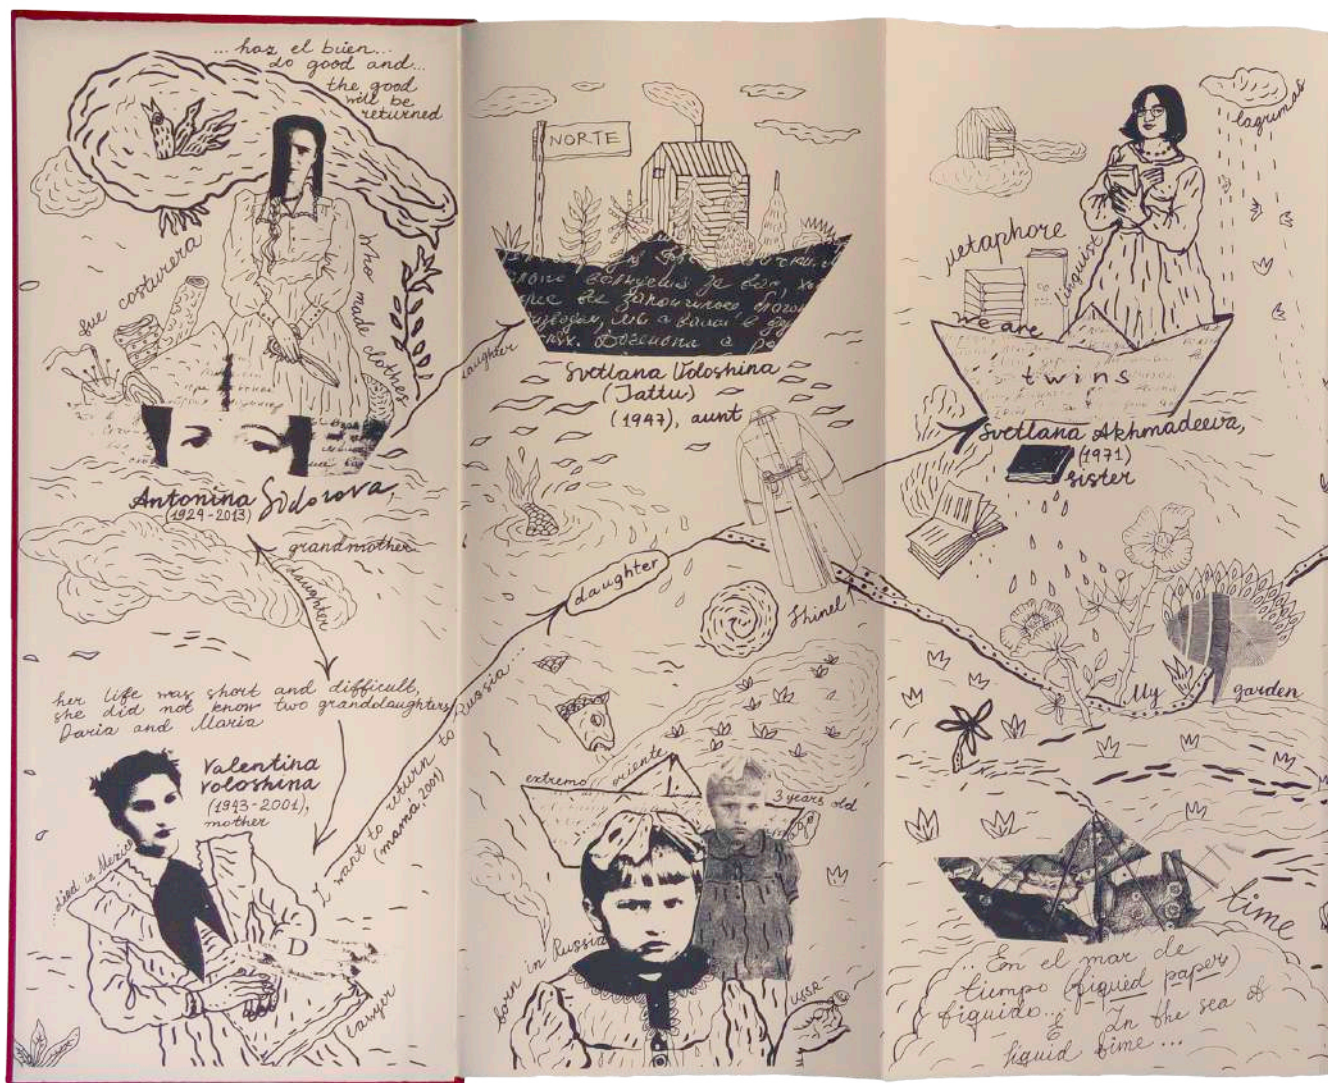 ... haz el bien...
do good and...
the good
will be
returned
fue costurera
who made clothes
Antonina Sidorova,
(1924-2013)
grandmother
daughter
her life was short and difficult,
she did not know two granddaughters
Daria and Maria
Valentina
Voloshina
(1943-2001),
mother
...died in Mexico
D
lawyer
I want to return to Russia...
(mamá, 2001)
daughter
NORTE
daughter
Svetlana Voloshina
(Tattu)
(1947), aunt
Shinel
extremo oriente
3 years old
ago
born in Russia
USSR
lagrimas
metaphore
linguist
we are
twins
Svetlana Akhmadeeva,
(1971)
sister
My garden
time
... En el mar de
tiempo (liquid papers)
liquido...
In the sea of
liquid time...